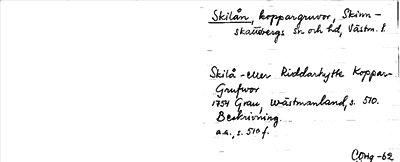 Skilån, koppargruvor, Skinn-
skattebergs sn och hd, Västm. l.
Skilå- eller Riddarhytte Koppar-
Grufwor
1754 Grau, Wästmanland, s. 510.
Beskrivning.
a.a., s. 510 f.
-62